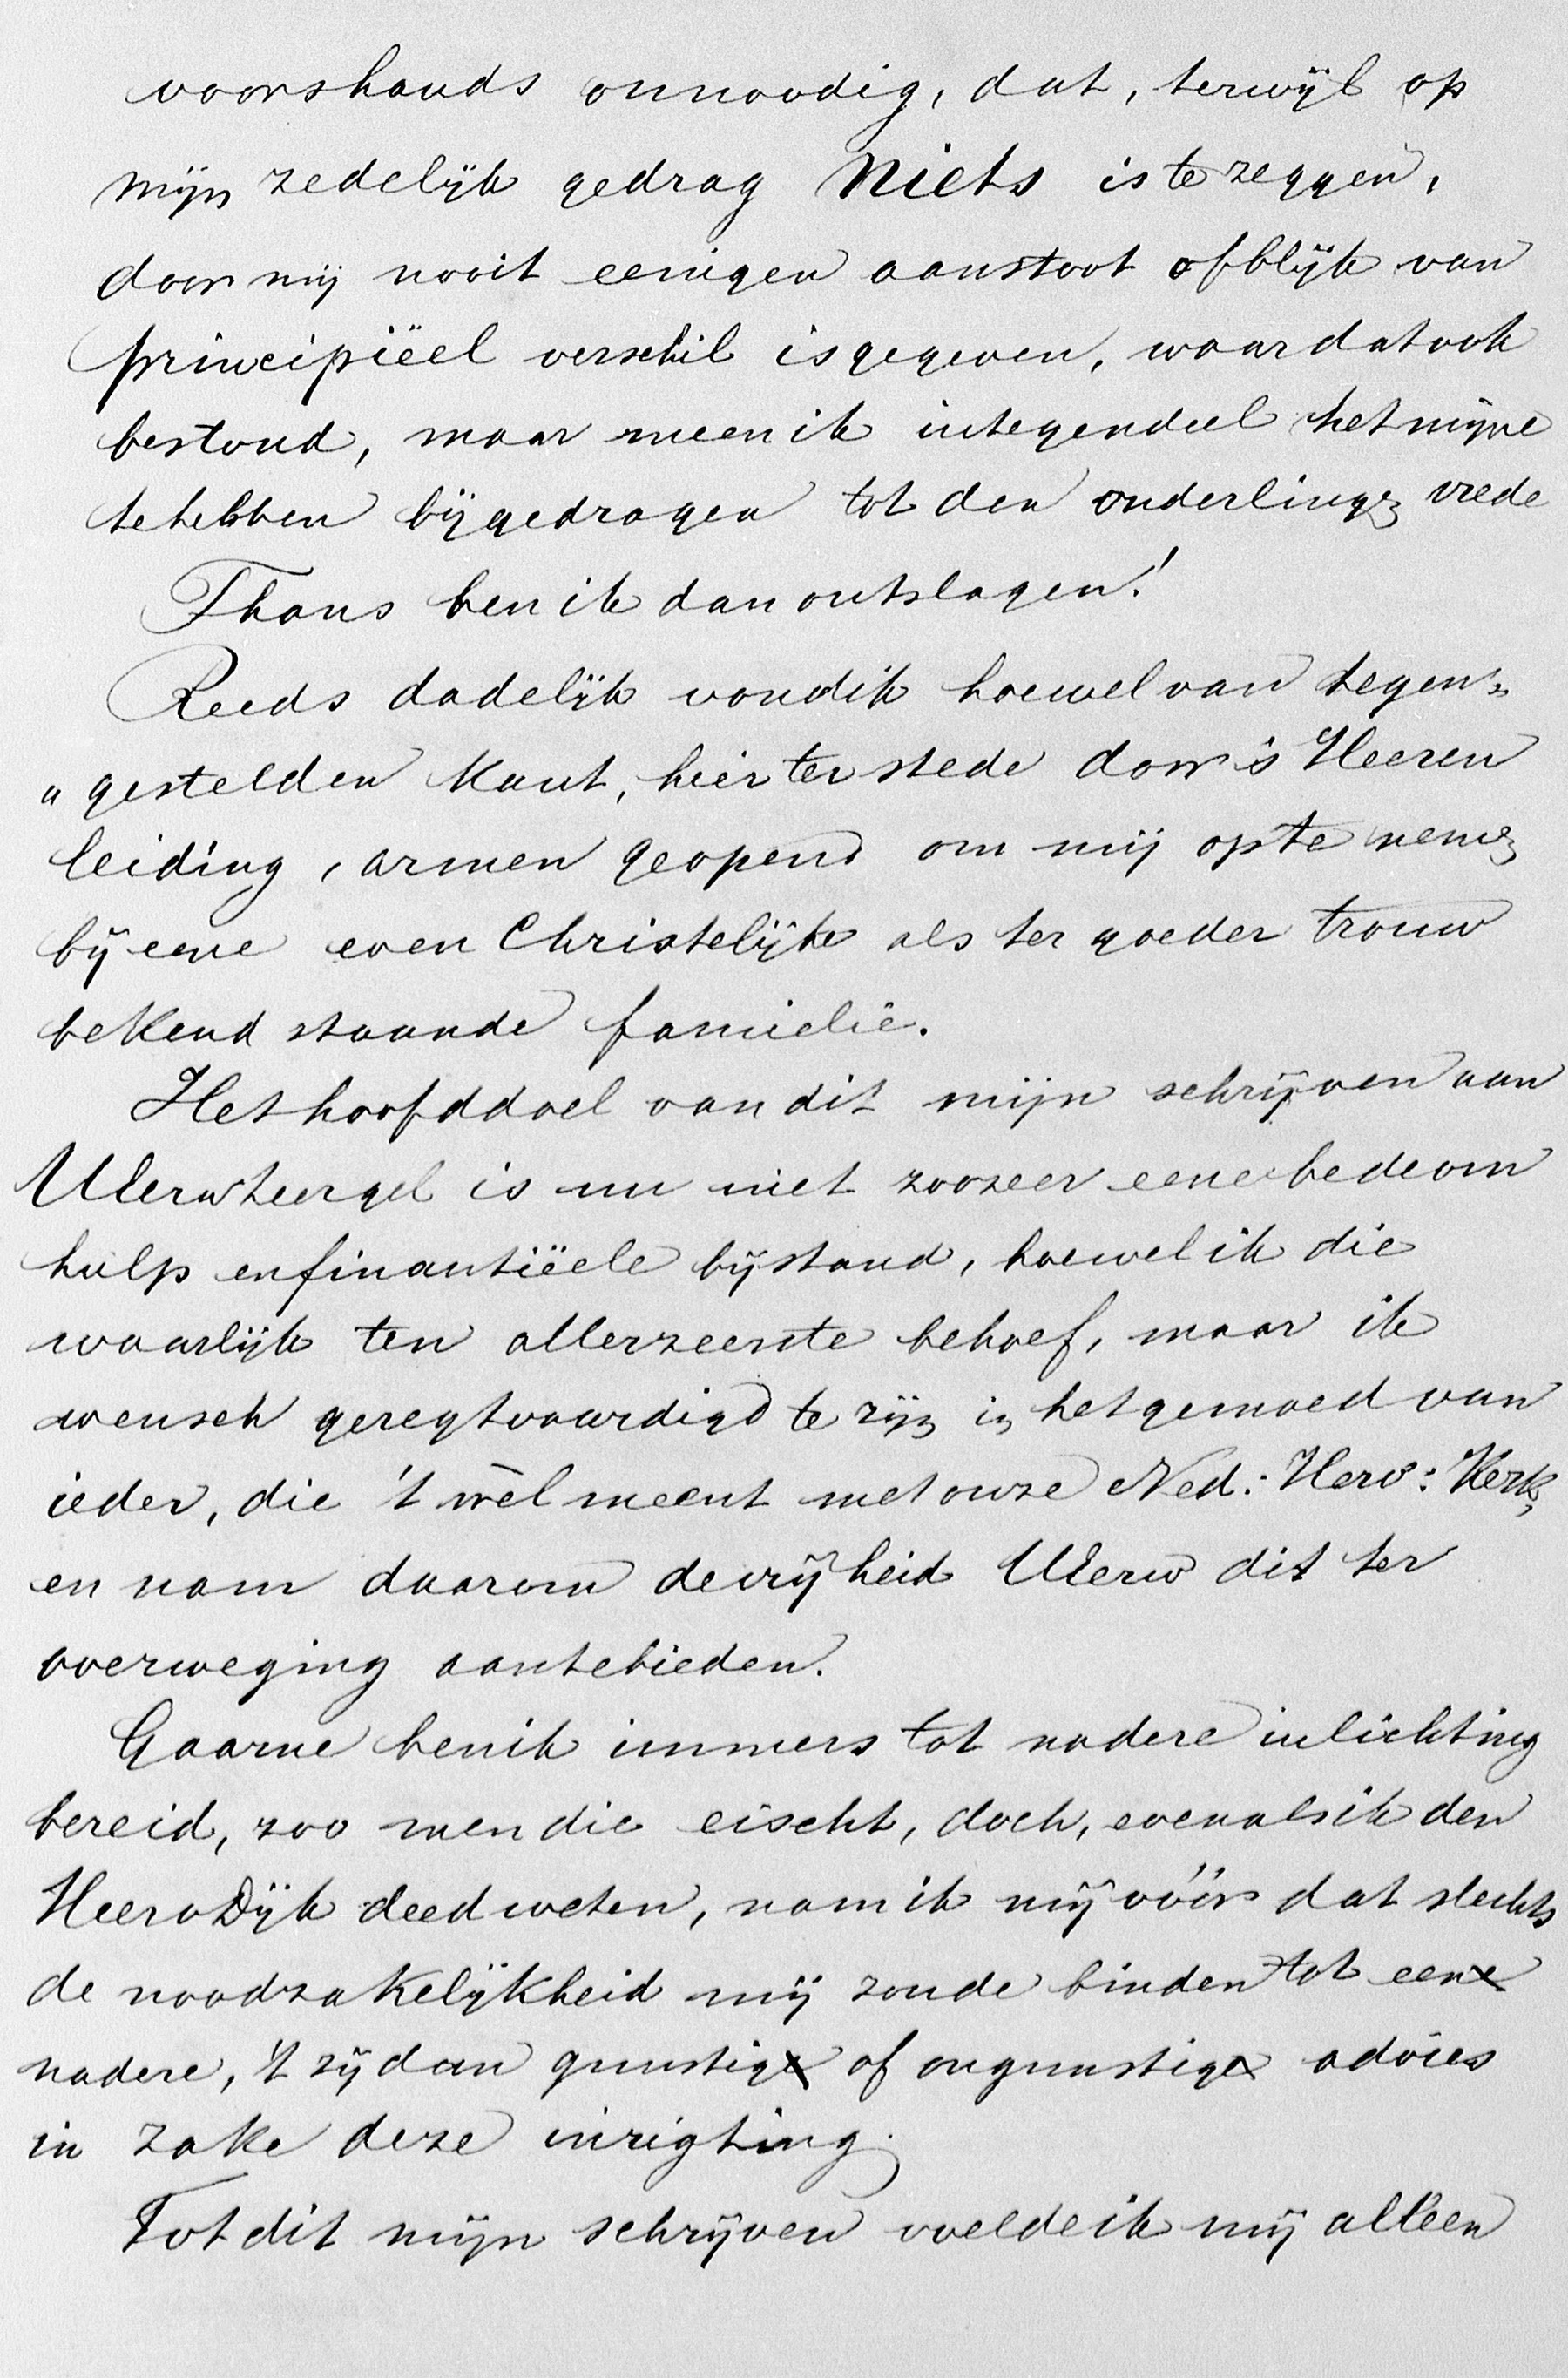 voorshands onnoodig, dat, terwijl op
mijn zedelijk gedrag Niets is te zeggen,
door mij nooit eenigen aanstoot of blijk van
principiëel verschil is gegeven, waar dat ook
bestond, maar meen ik integendeel het mijne
te hebben bijgedragen tot den onderlingen vrede
Thans ben ik dan ontslagen!
Reeds dadelijk vond ik hoewel van tegen„
„gestelden Kant, hier ter stede door 's Heeren
leiding, armen geopend om mij op te nemen
bij eene even Christelijke als ter goeder trouw
beKend staande familie.
Het hoofddoel van dit mijn schrijven aan
UEerw Heergel is nu niet zoozeer eene bede om
hulp en finantiëele bijstand, hoewel ik die
waarlijk ten allerzeerste behoef, maar ik
wensch geregtvaardigd te zijn in het gemoed van
ieder, die 't wèl meent met onze Ned: Herv: Kerk,
en nam daarom de vrijheid UEerw dit ter
overweging aantebieden.
Gaarne ben ik immers tot nadere inlichting
bereid, zoo men die eischt, doch, evenals ik den
Heer v Dijk deed weten, nam ik mij vóór dat slechts
de noodzaKelijKheid mij zoude binden tot eene
nadere, 't zij dan gunstige of ongunstige advies
in zaKe deze inrigting.
Tot dit mijn schrijven voelde ik mij alleen